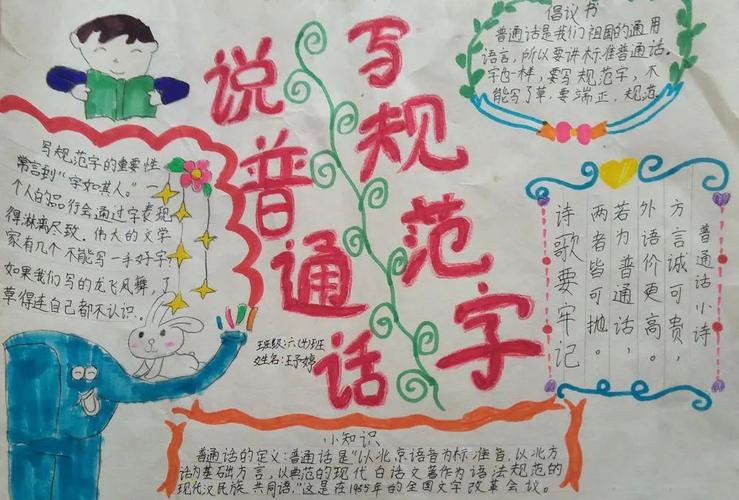 说普通话
写规范字
倡议书
普通话是我们祖国的通用
语言，所以要讲标准普通话。
字也一样，要写规范字，不
能写了草，要端正，规范
写规范字的重要性
常言到“字如其人。”一
个人的品行会通过字表现
得淋漓尽致．伟大的文学
家有几个不能写一手好字；
如果我们写的龙飞凤舞，了
草得连自己都不认识．
班级：六（4）班
姓名：王予婷
普通话小诗
方言诚可贵，
外语价更高。
若为普通话，
两者皆可抛。
诗歌要牢记
小知识
普通话的定义：普通话是“以北京语音为标准音，以北方
话为基础方言，以典范的现代白话文著作为语法规范的
现代汉民族共同语。”这是在1955年的全国文字改革会议。